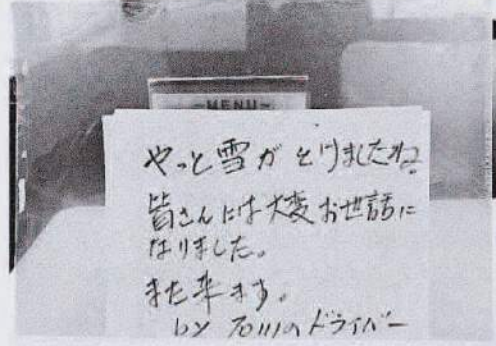 ~MENU~
やっと雪がとけましたね。
皆さんには大変お世話に
なりました。
また来ます。
by 70111のドライバー